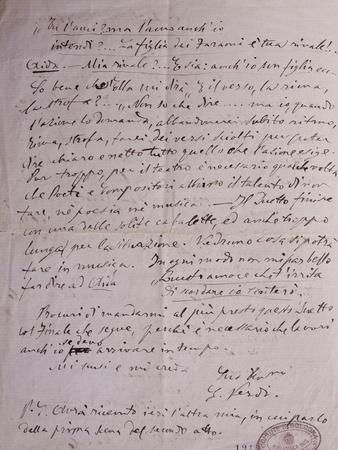 "Tu l'ami? ma l'amo anch'io
intendi?... La figlia dei Faraoni è tua rivale!..
Aida. — Mia rivale?... E sia: anch'io son figlia ecc
So bene che Ella mi dirà, E il verso, la rima,
la strofa?... Non so che dire .... ma io, quando
l'azione lo domanda, abbandonerei subito ritmo,
rima, strofa; farei dei versi sciolti per poter
dire chiaro e netto tutto quello che l'azione esige.
Pur troppo, per il teatro è necessario qualche volta
che Poeti e Compositori abbiano il talento di non
fare, nè poesia nè musica. — Il Duetto finisce
con una delle solite cabalette, ed anche troppo
lunga per la situazione. Vedremo cosa si potrà
fare in musica. In ogni modo non mi par bello
far dire ad Aida
Quest'amore che t'irrita
Di scordare io tenterò.
Procuri di mandarmi al più presto questo Duetto
col Finale che segue, perchè è necessario che lavori
anch'io se devo arrivare in tempo.
Mi scusi e mi creda
Suo
G. Verdi.
P.S. Avrà ricevuto ieri l'altra mia, in cui parlo
della prima scena del secondo atto.